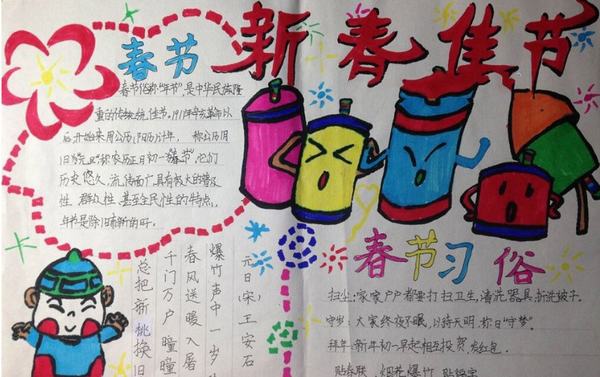 新春佳节
春节
春节俗称"年节",是中华民族隆
重的传统佳节,1911年辛亥革命以
后,开始采用公历(阳历)计年,称公历
称农历正月初一"春节",它们
历史悠久,流传面广具有极大的普及
性、群众性、甚至全民性的特点,
年节是除旧布新的
元日(宋)王安石
爆竹声中一岁
春风送暖入屠
千门万户曈曈
总把新桃换旧
春节习俗
扫尘:家家户户都要打扫卫生,清洗器具,拆洗被子。
守岁:大家终夜不眠,以待天明,称曰"守岁"。
拜年:新年初一早起相互投贺,发红包。
贴春联 烟花爆竹